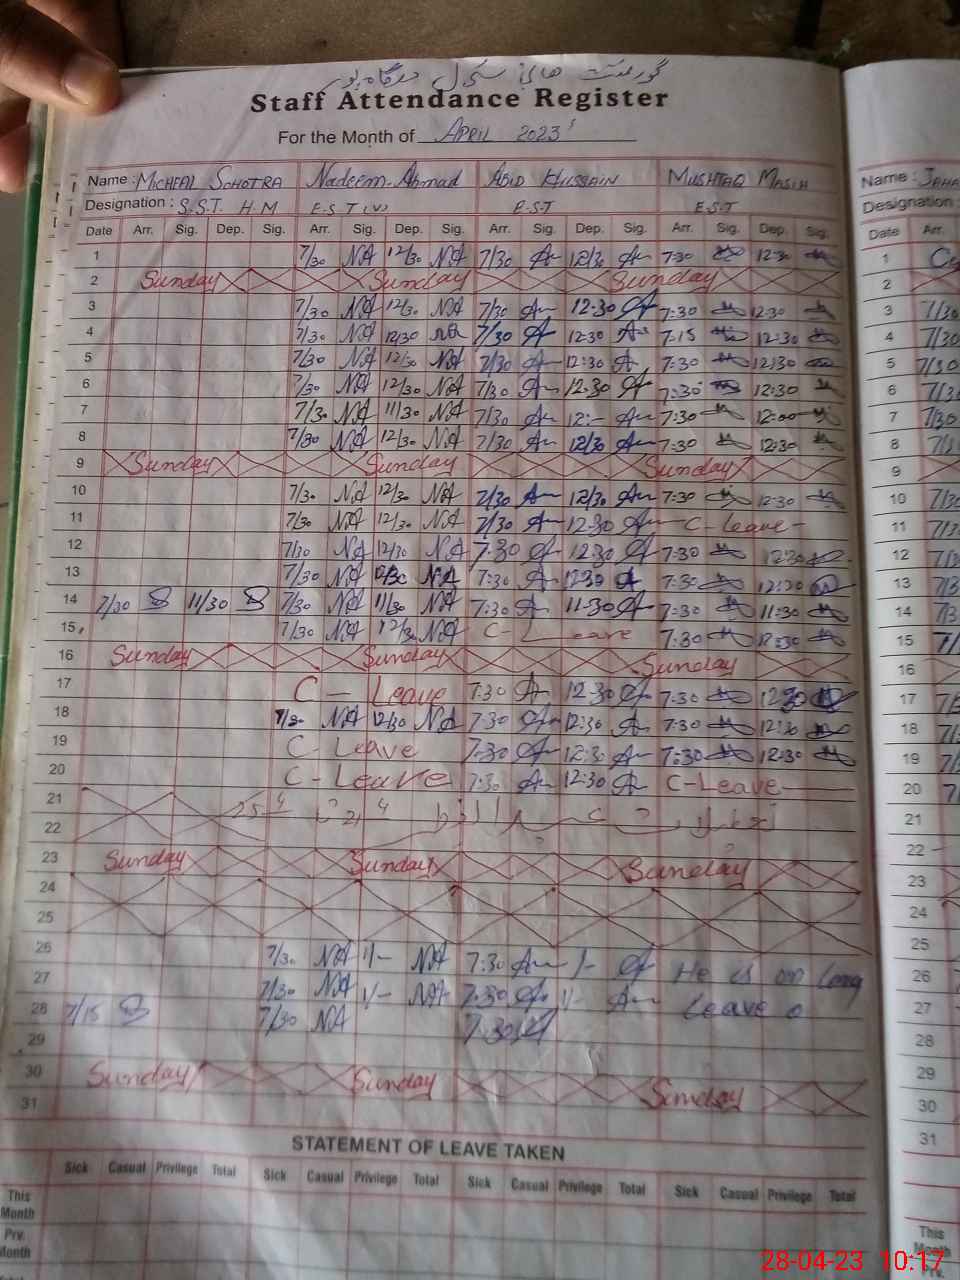 گورنمنٹ ہائی سکول درگاہ پور
Staff Attendance Register
For the Month of APRIL 2023
Name : MICHEAL SOHOTRA Nadeem Ahmad ABID HUSSAIN MUSHTAQ MASIH Name :
Designation : S.S.T. H.M E.S.T (V) E.S.T E.S.T Designation :
Date Arr. Sig. Dep. Sig. Arr. Sig. Dep. Sig. Arr. Sig. Dep. Sig. Arr. Sig. Dep. Sig. Date Arr.
1 7/30 NA 12/30 NA 7/30 12/30 7:30 12:30 1
2 Sunday Sunday Sunday 2
3 7/30 NA 12/30 NA 7/30 12:30 7:30 12:30 3 7/30
4 7/30 NA 12/30 NA 7/30 12:30 7:15 12:30 4 7/30
5 7/30 NA 12/30 NA 7/30 12:30 7:30 12:30 5 7/30
6 7/30 NA 12/30 NA 7/30 12:30 7:30 12:30 6 7/30
7 7/30 NA 11/30 NA 7/30 12:- 7:30 12:00 7 7/30
8 7/30 NA 12/30 NA 7/30 12/30 7:30 12:30 8
9 Sunday Sunday Sunday 9
10 7/30 NA 12/30 NA 7/30 12/30 7:30 12:30 10 7/30
11 7/30 NA 12/30 NA 7/30 12:30 C-Leave- 11
12 7/30 NA 12/30 NA 7:30 12:30 7:30 12:30 12
13 7/30 NA 12/30 NA 7:30 12:30 7:30 12:30 13
14 7/30 11/30 7/30 NA 11/30 NA 7:30 11-30 7:30 11:30 14
15 7/30 NA 12/30 NA C-Leave 7:30 12:30 15
16 Sunday Sunday Sunday 16
17 C-Leave 7:30 12:30 7:30 12:30 17
18 7/30 NA 12/30 NA 7:30 12:30 7:30 12:30 18
19 C-Leave 7:30 12:30 7:30 12:30 19
20 C-Leave 7:30 12:30 C-Leave 20
21 21
22 22
23 Sunday Sunday Sunday 23
24 24
25 25
26 7/30 NA 1/- NA 7:30 1/- He is on long 26
27 7/30 NA 1/- NA 7:30 1/- Leave 27
28 7/15 7/30 NA 7:30 28
29 29
30 Sunday Sunday Sunday 30
31 31
STATEMENT OF LEAVE TAKEN
Sick Casual Privilege Total Sick Casual Privilege Total Sick Casual Privilege Total Sick Casual Privilege Total
This Month This Month
Prv. Month Prv.
28-04-23 10:17